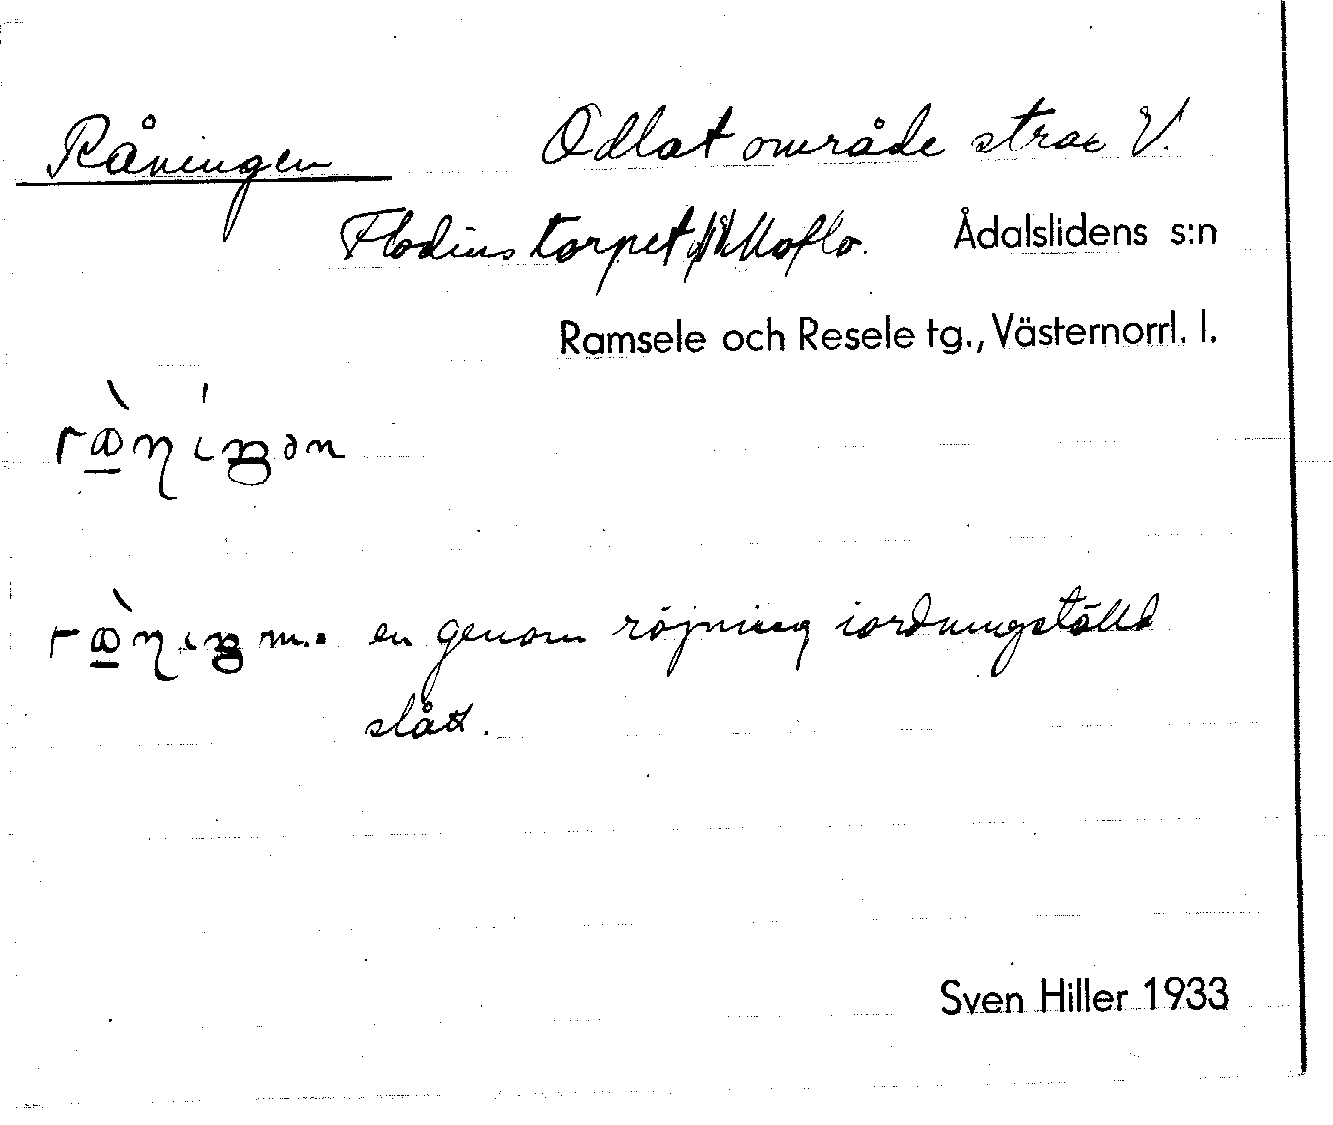 Råningen Odlat område strax V.
Flodins torpet, Moflo. Ådalslidens s:n
Ramsele och Resele tg., Västernorrl. l.
en genom röjning iordningställd
slått.
Sven Hiller 1933